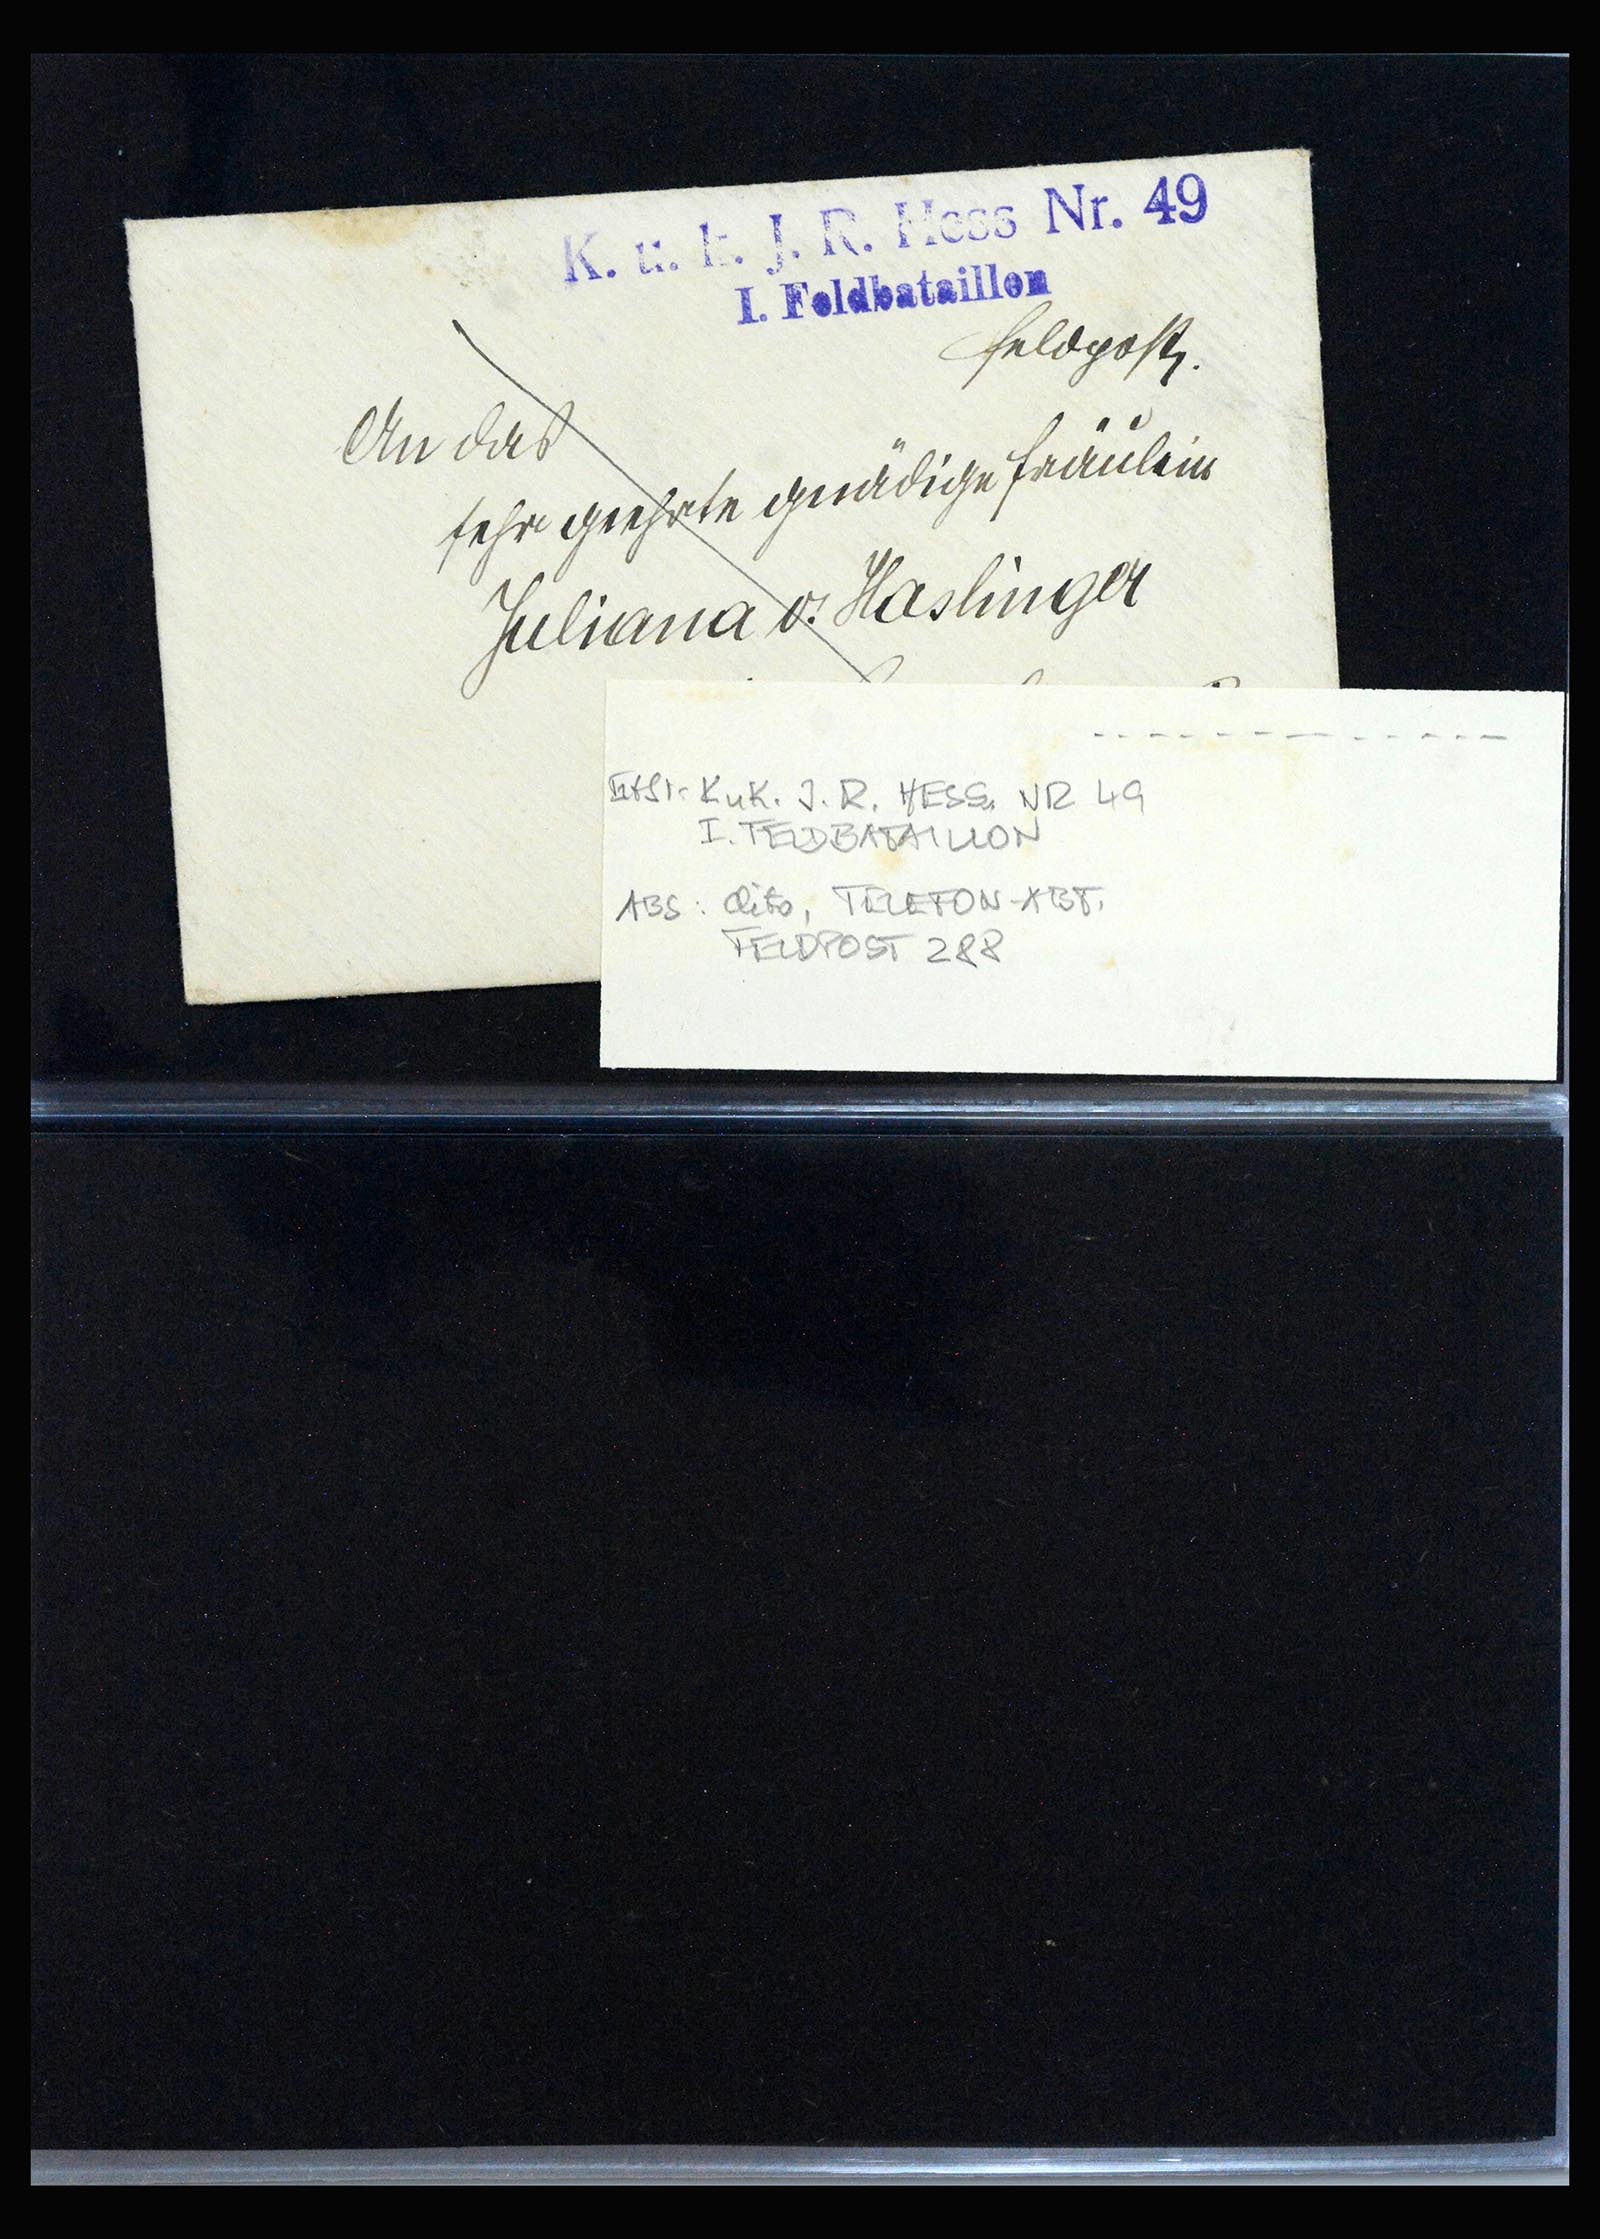 K. u. k. J. R. Hess Nr. 49
I. Feldbataillon
Feldpost.
An das
sehr geehrte gnädige Fräulein
Juliana v. Haslinger
KuK. J. R. HESS. NR 49
I. FELDBATAILLON
ABS: dito, TELEFON-ABT.
FELDPOST 288